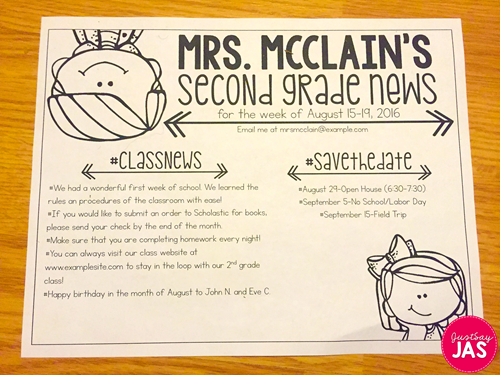 MRS. MCCLAIN'S
second grade news
for the week of August 15-19, 2016
Email me at mrsmcclain@example.com
#CLASSNEWS
We had a wonderful first week of school. We learned the
rules an procedures of the classroom with ease!
If you would like to submit an order to Scholastic for books,
please send your check by the end of the month.
Make sure that you are completing homework every night!
You can always visit our class website at
www.examplesite.com to stay in the loop with our 2nd grade
class!
Happy birthday in the month of August to John N. and Eve C.
#SAVETHEDATE
August 29-Open House (6:30-7:30)
September 5-No School/Labor Day
September 15-Field Trip
JustSay
JAS